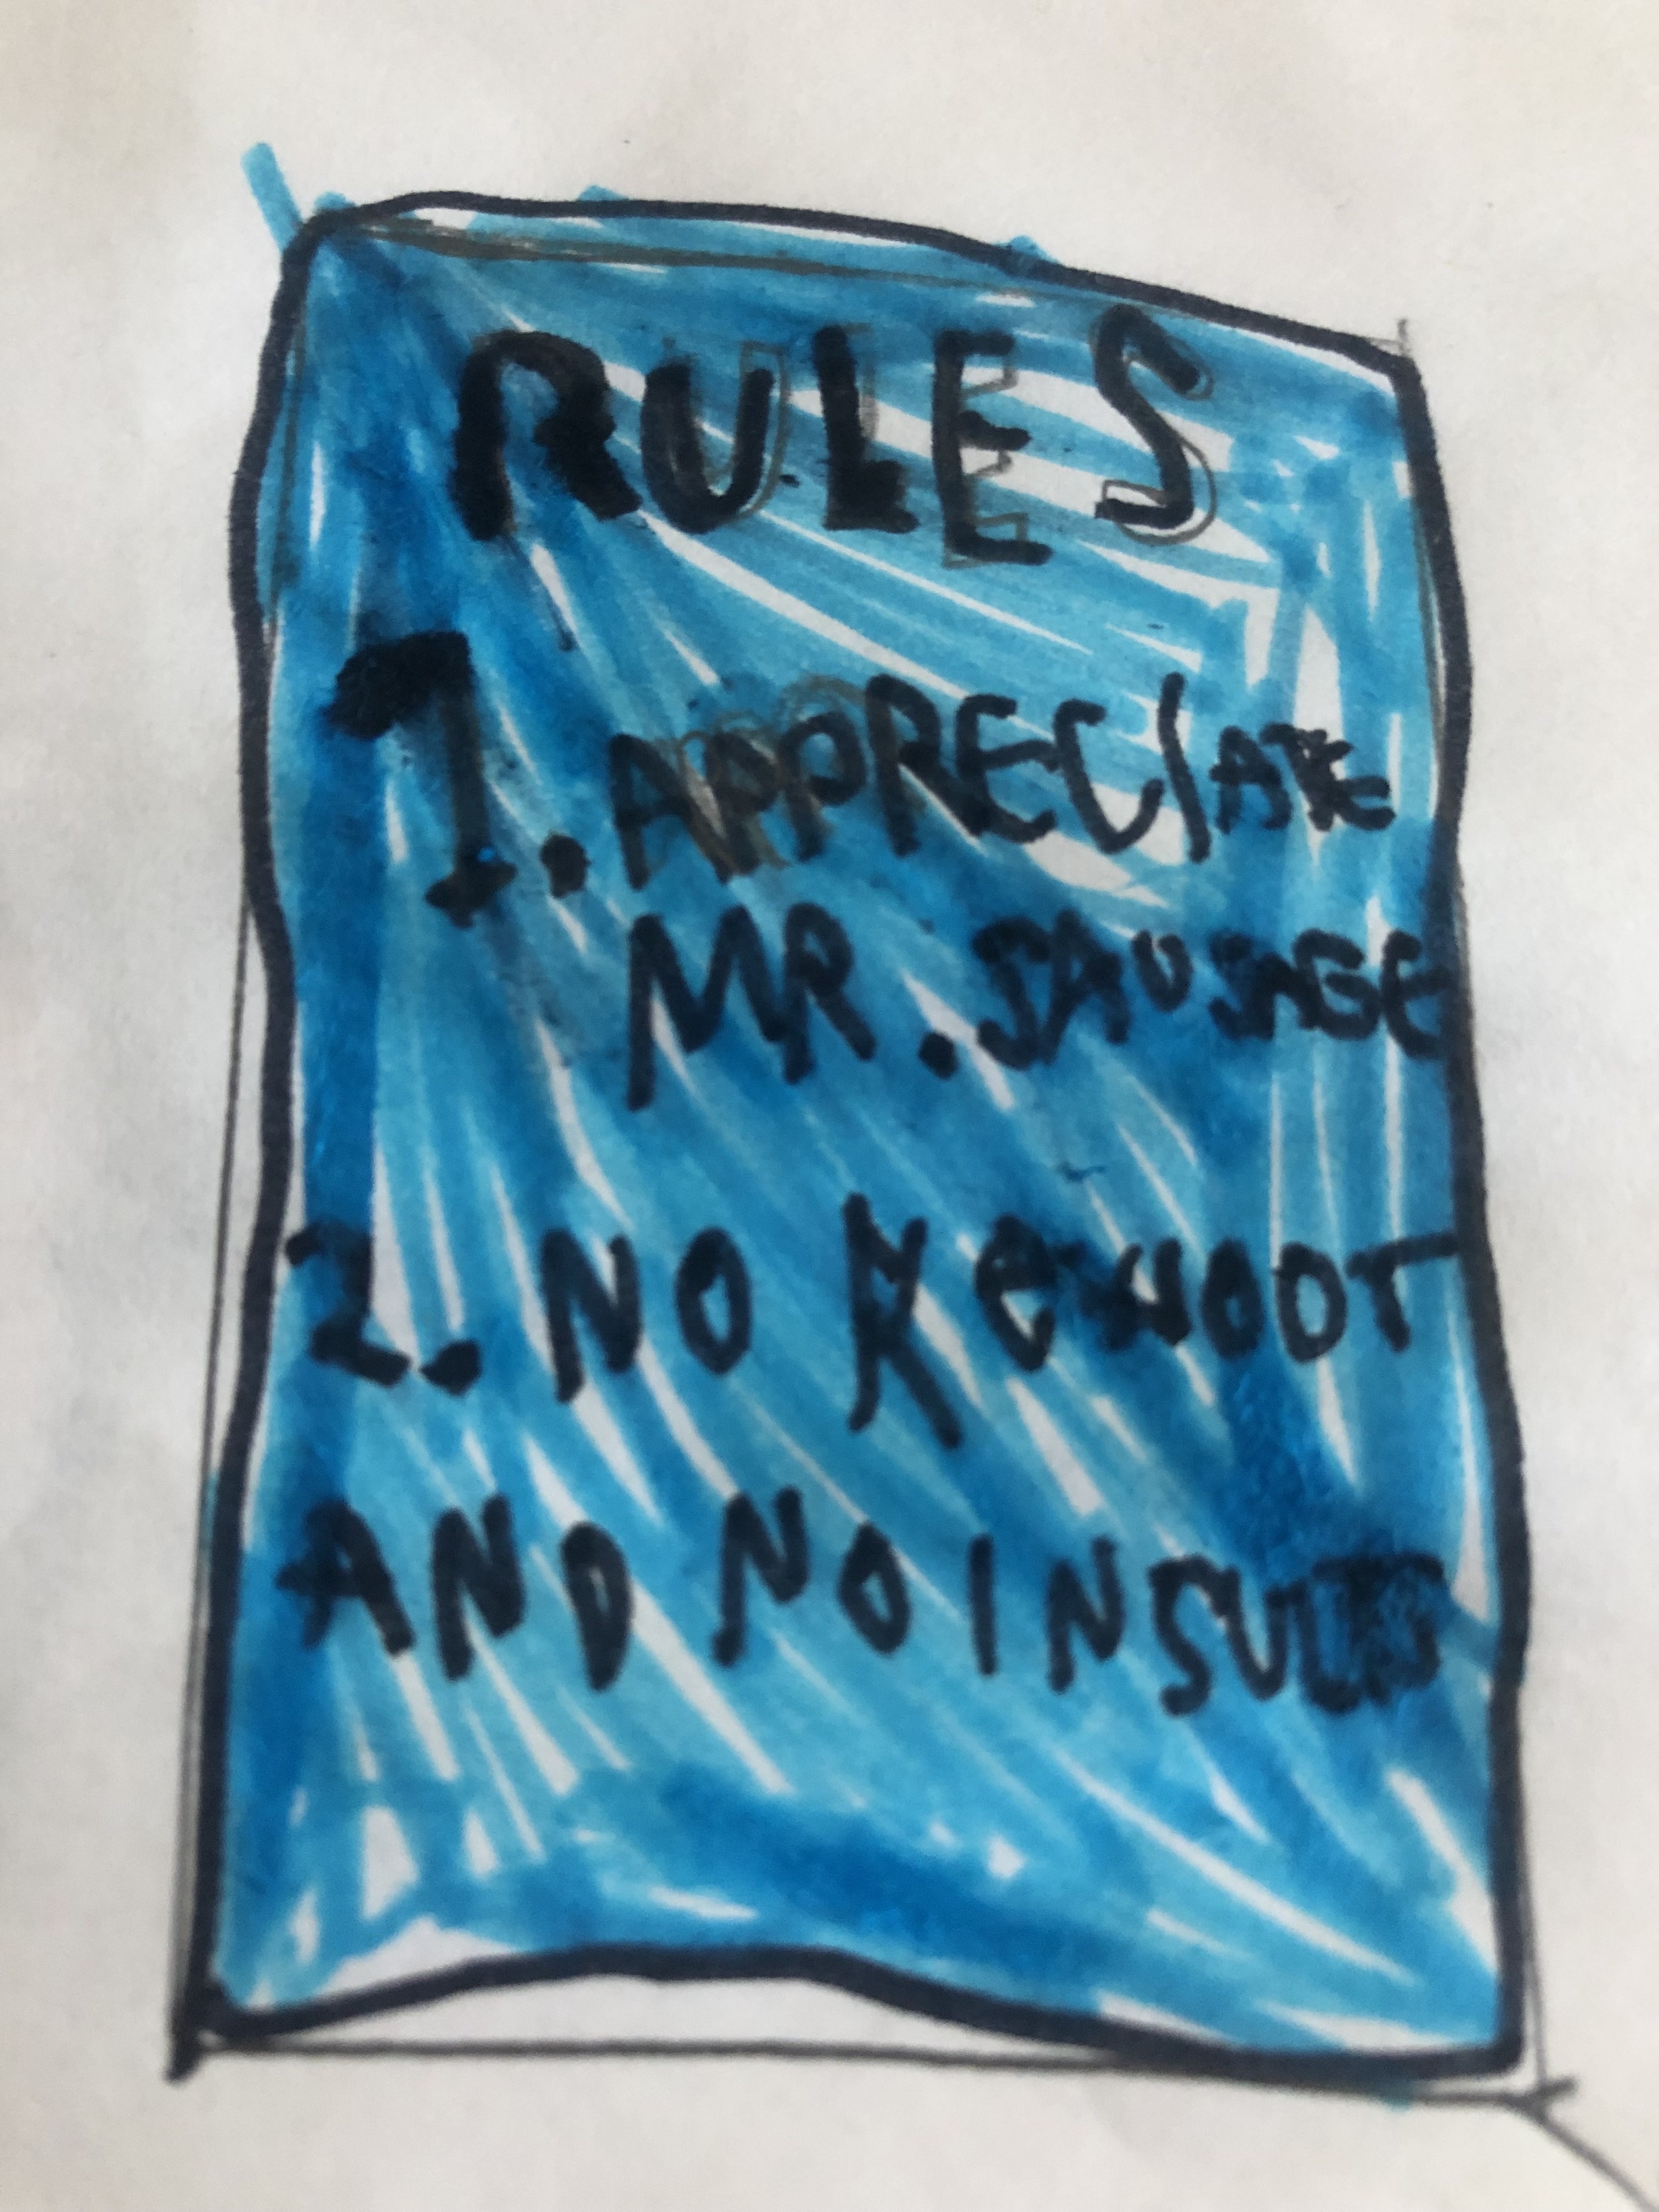 RULES
1. APPRECIATE
MR. SAUSAGE
2. NO
AND NO INSULTS